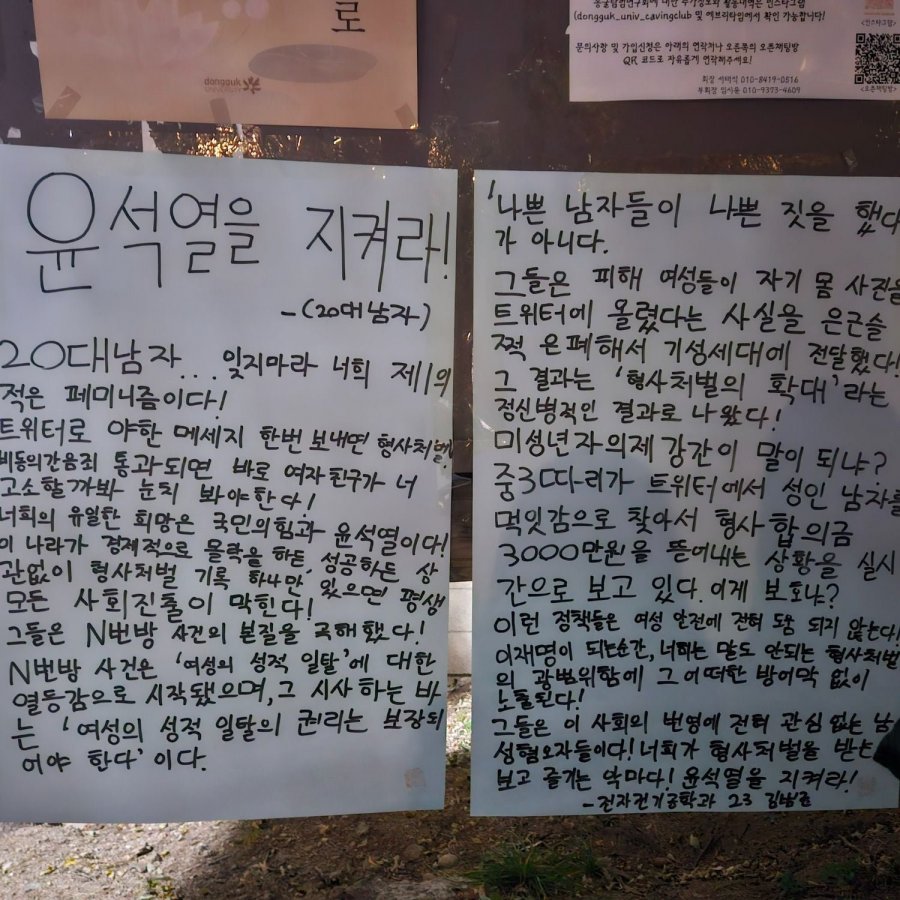 로
dongguk
UNIVERSITY
(dongguk_univ_cavingclub 및 에브리타임에서 확인 가능합니다!
문의사항 및 가입신청은 아래의 연락처나 오른쪽의 오픈채팅방
QR 코드로 자유롭게 연락해주세요!
회장 서태석 010-8419-0516
부회장 임사윤 010-9373-4609
<인스타그램>
<오픈채팅방>
윤석열을 지켜라!
-(20대남자)
20대남자... 잊지마라 너희 제1의
적은 페미니즘이다!
트위터로 야한 메세지 한번 보내면 형사처벌,
비동의간음죄 통과되면 바로 여자친구가 너
고소할까봐 눈치 봐야한다!
너희의 유일한 희망은 국민의힘과 윤석열이다!
이 나라가 경제적으로 몰락을 하든, 성공하든 상
관없이 형사처벌 기록 하나만 있으면 평생
모든 사회진출이 막힌다!
그들은 N번방 사건의 본질을 곡해했다!
N번방 사건은 '여성의 성적 일탈'에 대한
열등감으로 시작됐으며, 그 시사하는 바
는 '여성의 성적 일탈의 권리는 보장되
어야 한다'이다.
'나쁜 남자들이 나쁜 짓을 했다
가 아니다.
그들은 피해 여성들이 자기 몸 사진을
트위터에 올렸다는 사실을 은근슬
쩍 은폐해서 기성세대에 전달했다!
그 결과는 '형사처벌의 확대'라는
정신병적인 결과로 나왔다!
미성년자의제강간이 말이 되냐?
중3따리가 트위터에서 성인 남자를
먹잇감으로 찾아서 형사 합의금
3000만원을 뜯어내는 상황을 실시
간으로 보고 있다. 이게 보호냐?
이런 정책들은 여성 안전에 전혀 도움 되지 않는다!
이재명이 되는순간, 너희는 말도 안되는 형사처벌
의 광범위함에 그 어떠한 방어막 없이
노출된다!
그들은 이 사회의 번영에 전혀 관심 없는 남
성혐오자들이다! 너희가 형사처벌을 받는
보고 즐기는 악마다! 윤석열을 지켜라!
-전자전기공학과 23 김범준